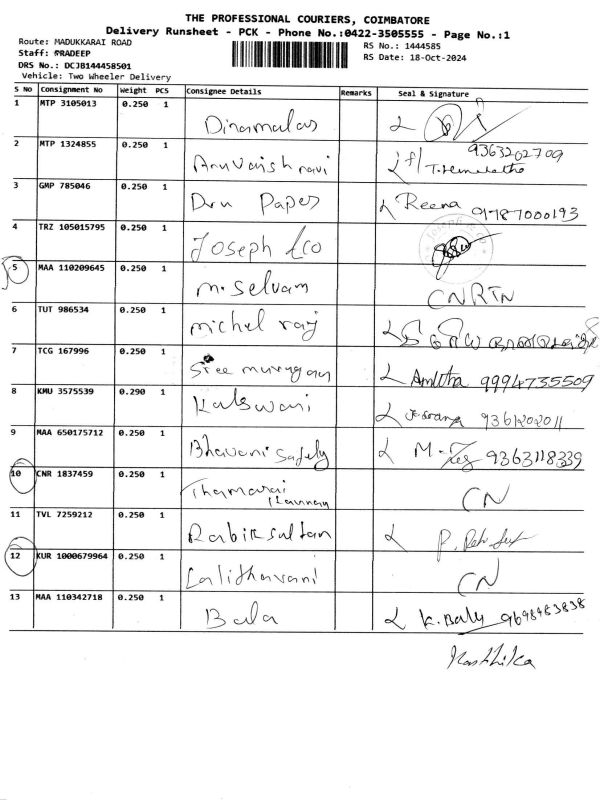 THE PROFESSIONAL COURIERS, COIMBATORE
Delivery Runsheet - PCK - Phone No.:0422-3505555 - Page No.:1
Route: MADUKKARAI ROAD RS No.: 1444585
Staff: PRADEEP RS Date: 18-Oct-2024
DRS No.: DCJB144458501
Vehicle: Two Wheeler Delivery
S No Consignment No Weight PCS Consignee Details Remarks Seal & Signature
1 MTP 3105013 0.250 1 Dinamalar
2 MTP 1324855 0.250 1 Aruvaish ravi 9363202709
T. Hemalatha
3 GMP 785046 0.250 1 Dru Paper Reena 01787000193
4 TRZ 105015795 0.250 1 Joseph &co
5 MAA 110209645 0.250 1 m. Selvam CNRTN
6 TUT 986534 0.250 1 michel raj
7 TCG 167996 0.250 1 Sree murugan Amutha 9994735509
8 KMU 3575539 0.290 1 Kaleswari 9361202011
9 MAA 650175712 0.250 1 Bhavani Safely M. 9363118339
10 CNR 1837459 0.250 1 Thamarai Kannan CN
11 TVL 7259212 0.250 1 Rabik sultan P.
12 KUR 1000679964 0.250 1 Lalithavani CN
13 MAA 110342718 0.250 1 Bala K. Bala 9698983838
Karthika